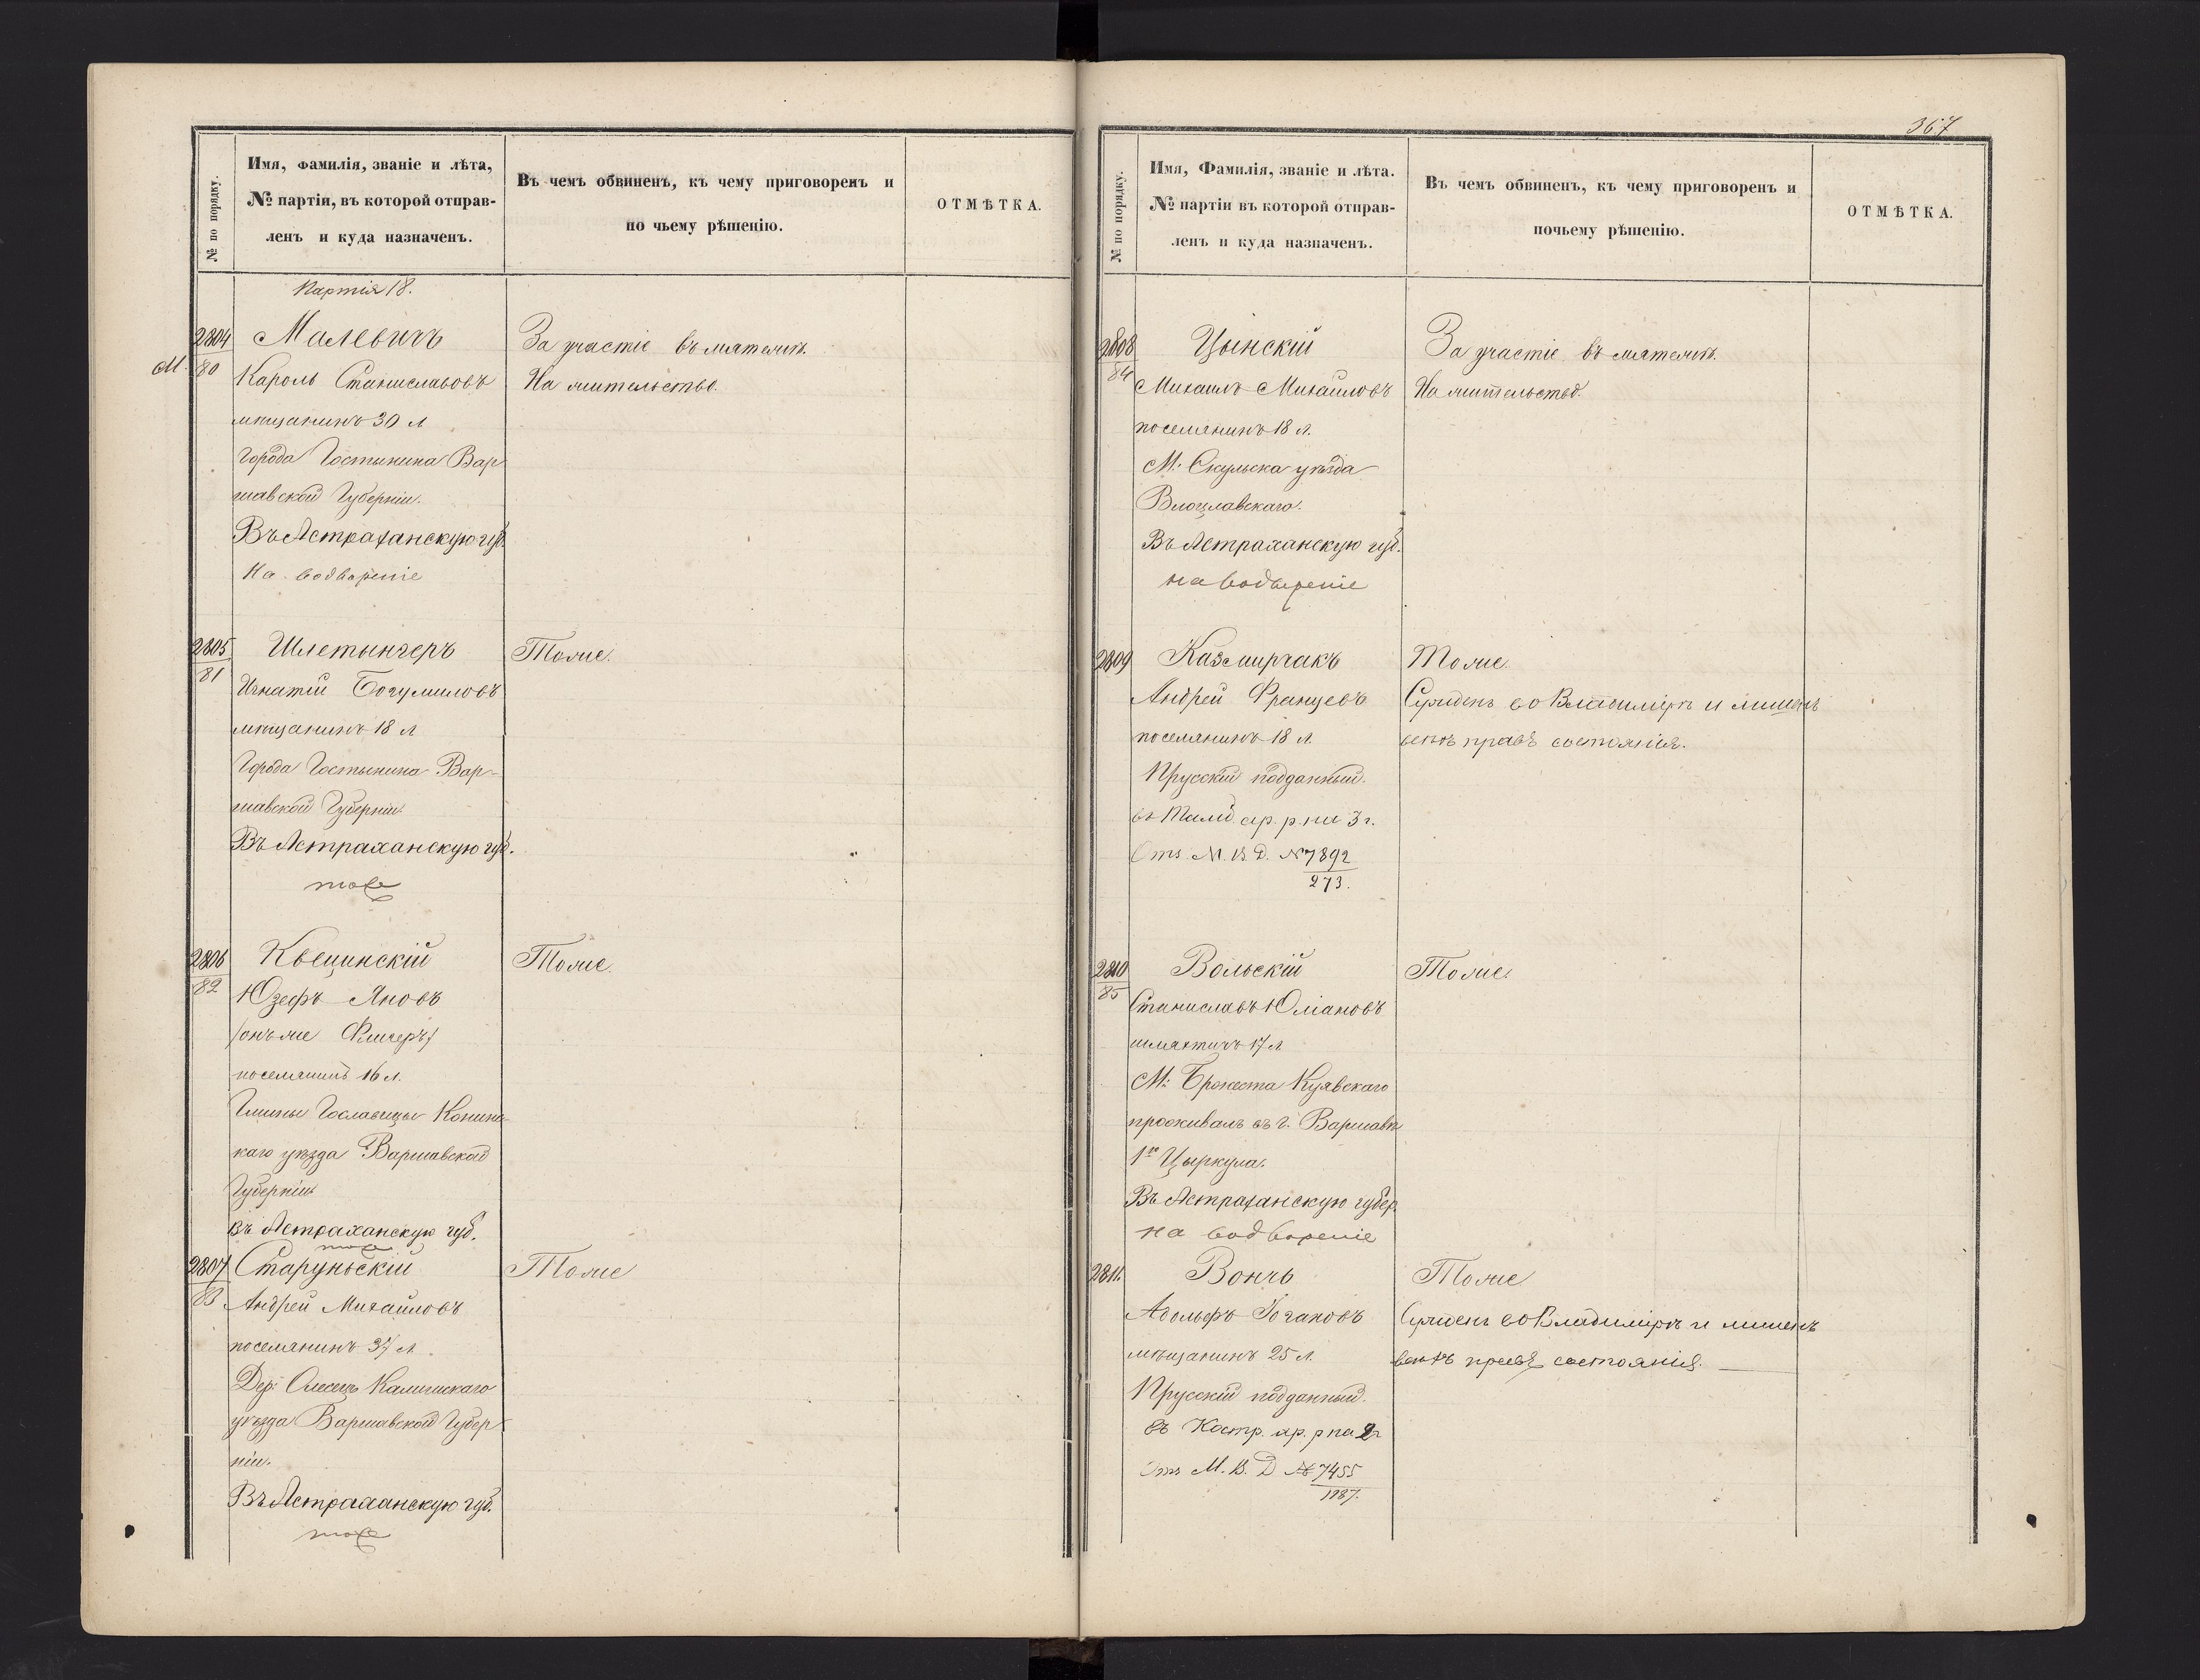 № по порядку.
Имя, Фамилія, званіе и лѣта,
№ партіи, въ которой отправ-
ленъ и куда назначенъ.
Въ чемъ обвиненъ, къ чему приговоренъ и
по чьему рѣшенію.
ОТМѢТКА.
Партія 18.
2804
80
М.
Малевичъ
Кароль Станиславовъ
мѣщанинъ 30 л
Города Гостынина Вар
шавской Губерніи.
Въ Астраханскую губ.
На водвореніе
За участіе въ мятежѣ.
На жительство.
2805
81
Шлетынгеръ
Игнатій Богумиловъ
мѣщанинъ 18 л
Города Гостынина Вар-
шавской Губерніи.
Въ Астраханскую губ.
тоже
Тоже.
2806
82
Квецинскій
Юзефъ Яновъ
/онъ же Флигеръ/
поселянинъ 16 л.
Гмины Гославицы Конинс
каго уѣзда Варшавской
Губерніи
Въ Астраханскую губ.
тоже
Тоже.
2807
83
Старуньскій
Андрей Михайловъ
поселянинъ 37 л.
Дер: Олесецъ Калишскаго
уѣзда Варшавской Губер
ніи.
Въ Астраханскую губ.
тоже
Тоже
367
№ по порядку.
Имя, Фамилія, званіе и лѣта.
№ партіи въ которой отправ-
ленъ и куда назначенъ.
Въ чемъ обвиненъ, къ чему приговоренъ и
почьему рѣшенію.
ОТМѢТКА.
2808
84
Цынскій
Михаилъ Михайловъ
поселянинъ 18 л.
М: Скульска уѣзда
Влоцлавскаго.
Въ Астраханскую губ.
на водвореніе
За участіе въ мятежѣ.
На жительство.
2809
Казмирчакъ
Андрей Францевъ
поселянинъ 18 л.
Прусскій подданный.
въ Тамб. ар. р. на 3 г.
Отъ М. В. Д. №7892
273.
Тоже.
Сужденъ во Владимірѣ и лишенъ
всѣхъ правъ состоянія.
2810
85
Вольскій
Станиславъ Юліановъ
шляхтичъ 17 л.
М: Бржеста Куявскаго
проживалъ въ г. Варшавѣ
1го Цыркула.
Въ Астраханскую губер.
на водвореніе
Тоже.
2811.
Вончъ
Адольфъ Югановъ
мѣщанинъ 25 л.
Прусскій подданный.
въ Костр. ар. р на 2г
Отъ М. В. Д №7455
1187.
Тоже
Сужденъ во Владимірѣ и лишенъ
всѣхъ правъ состоянія.